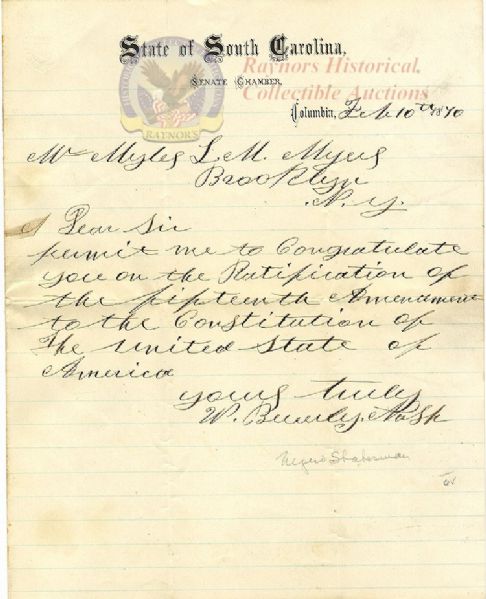 State of South Carolina,
Senate Chamber,
Raynors Historical
Collectible Auctions
RAYNOR'S
Columbia, Feb 10th 1870
Mr Myles L. M. Myers
Brooklyn
N. Y.
Dear Sir
permit me to Congratulate
you on the Ratification of
the fifteenth Amendment
to the Constitution of
the United State of
America
yours truly
W. Beverly Nash
Negro Statesman